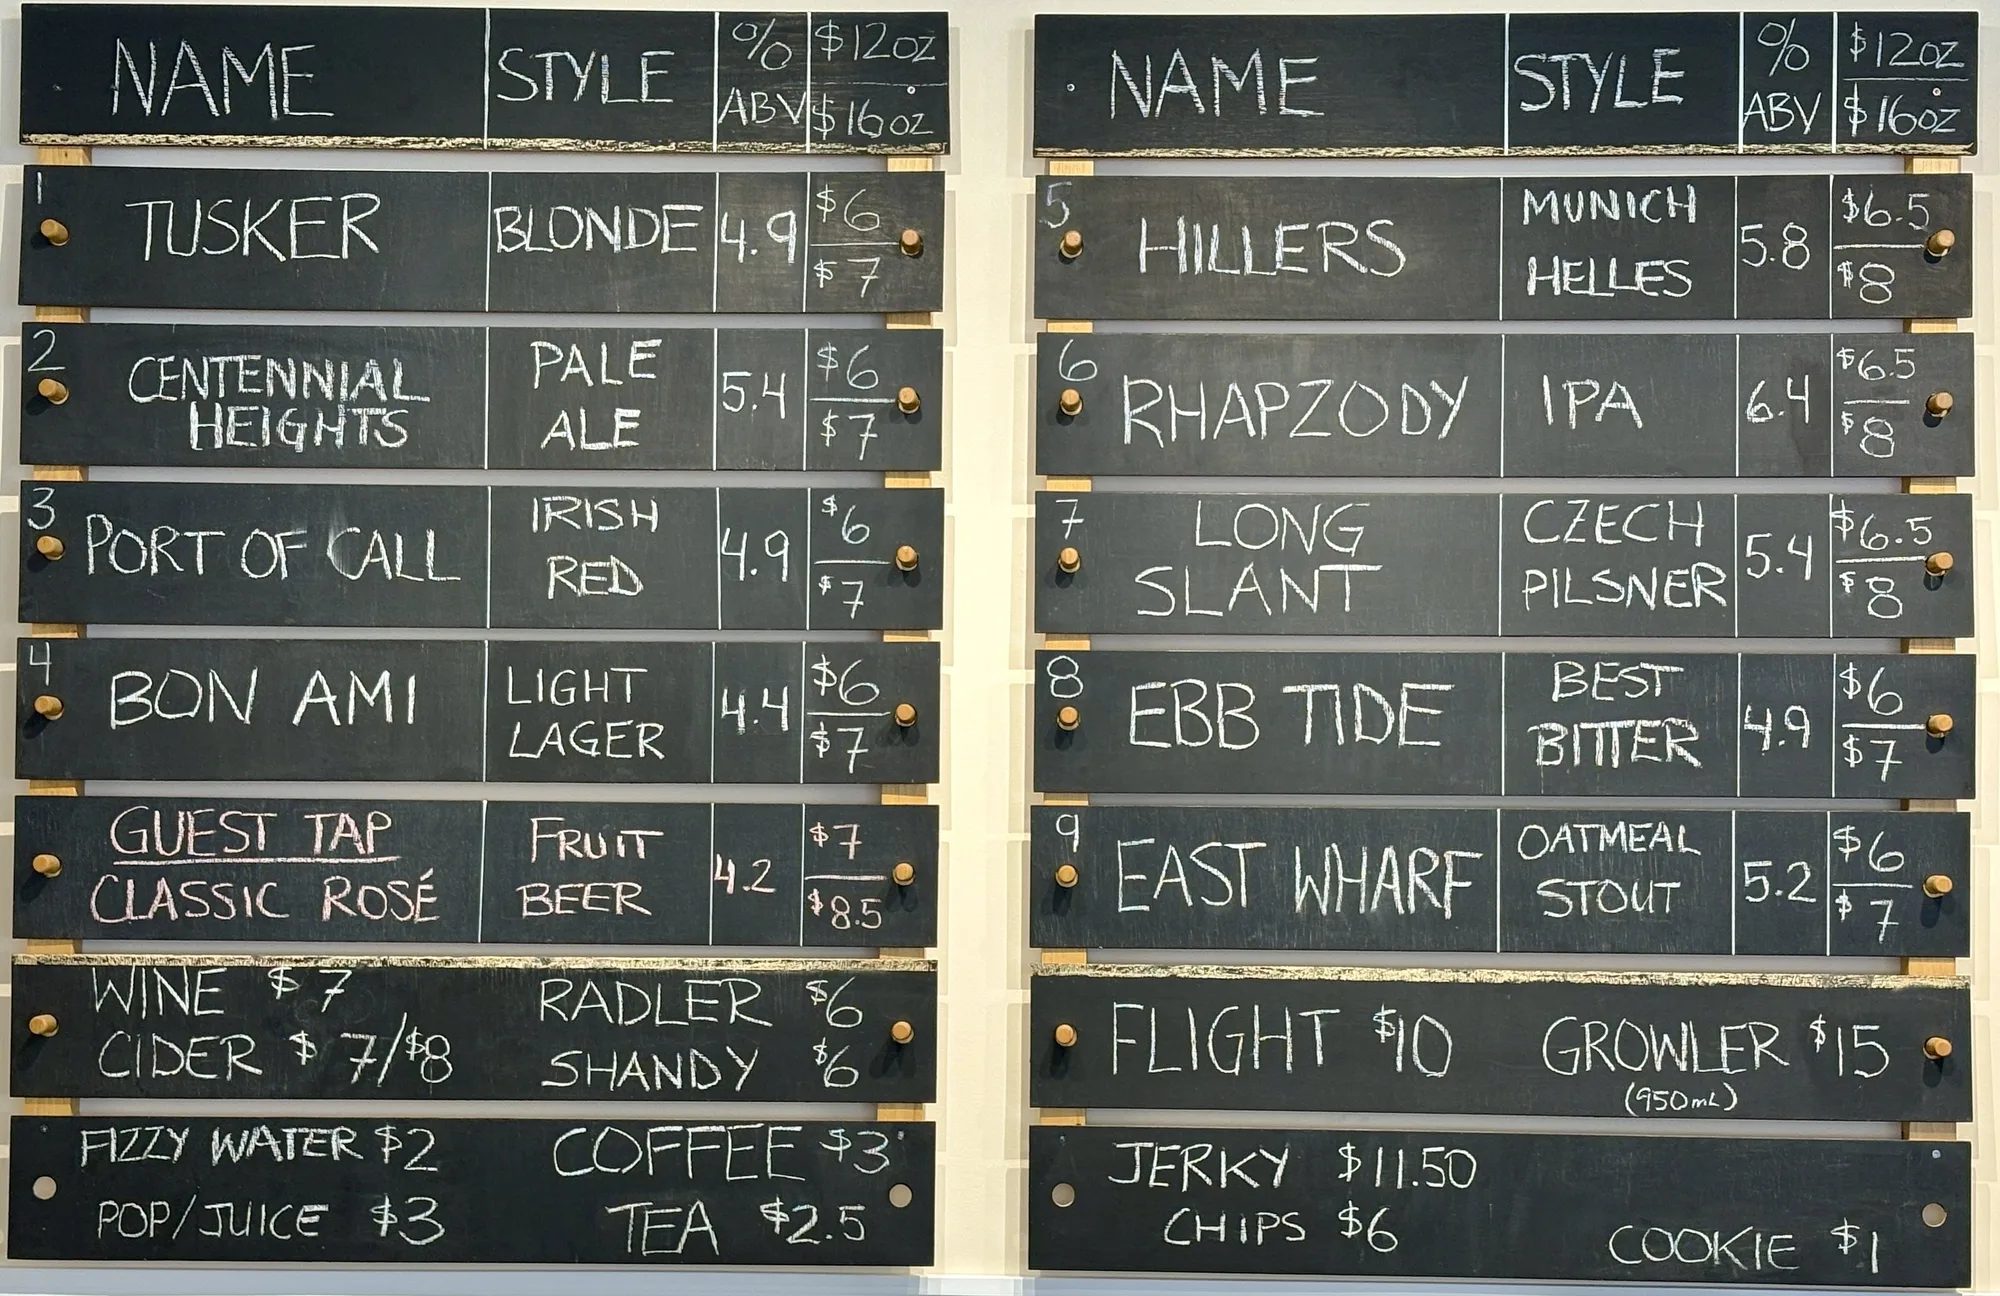 NAME STYLE % ABV $12oz $16oz
1 TUSKER BLONDE 4.9 $6 $7
2 CENTENNIAL HEIGHTS PALE ALE 5.4 $6 $7
3 PORT OF CALL IRISH RED 4.9 $6 $7
4 BON AMI LIGHT LAGER 4.4 $6 $7
GUEST TAP CLASSIC ROSÉ FRUIT BEER 4.2 $7 $8.5
WINE $7 RADLER $6
CIDER $7/$8 SHANDY $6
FIZZY WATER $2 COFFEE $3
POP/JUICE $3 TEA $2.5
NAME STYLE % ABV $12oz $16oz
5 HILLERS MUNICH HELLES 5.8 $6.5 $8
6 RHAPZODY IPA 6.4 $6.5 $8
7 LONG SLANT CZECH PILSNER 5.4 $6.5 $8
8 EBB TIDE BEST BITTER 4.9 $6 $7
9 EAST WHARF OATMEAL STOUT 5.2 $6 $7
FLIGHT $10 GROWLER $15
(950mL)
JERKY $11.50
CHIPS $6 COOKIE $1